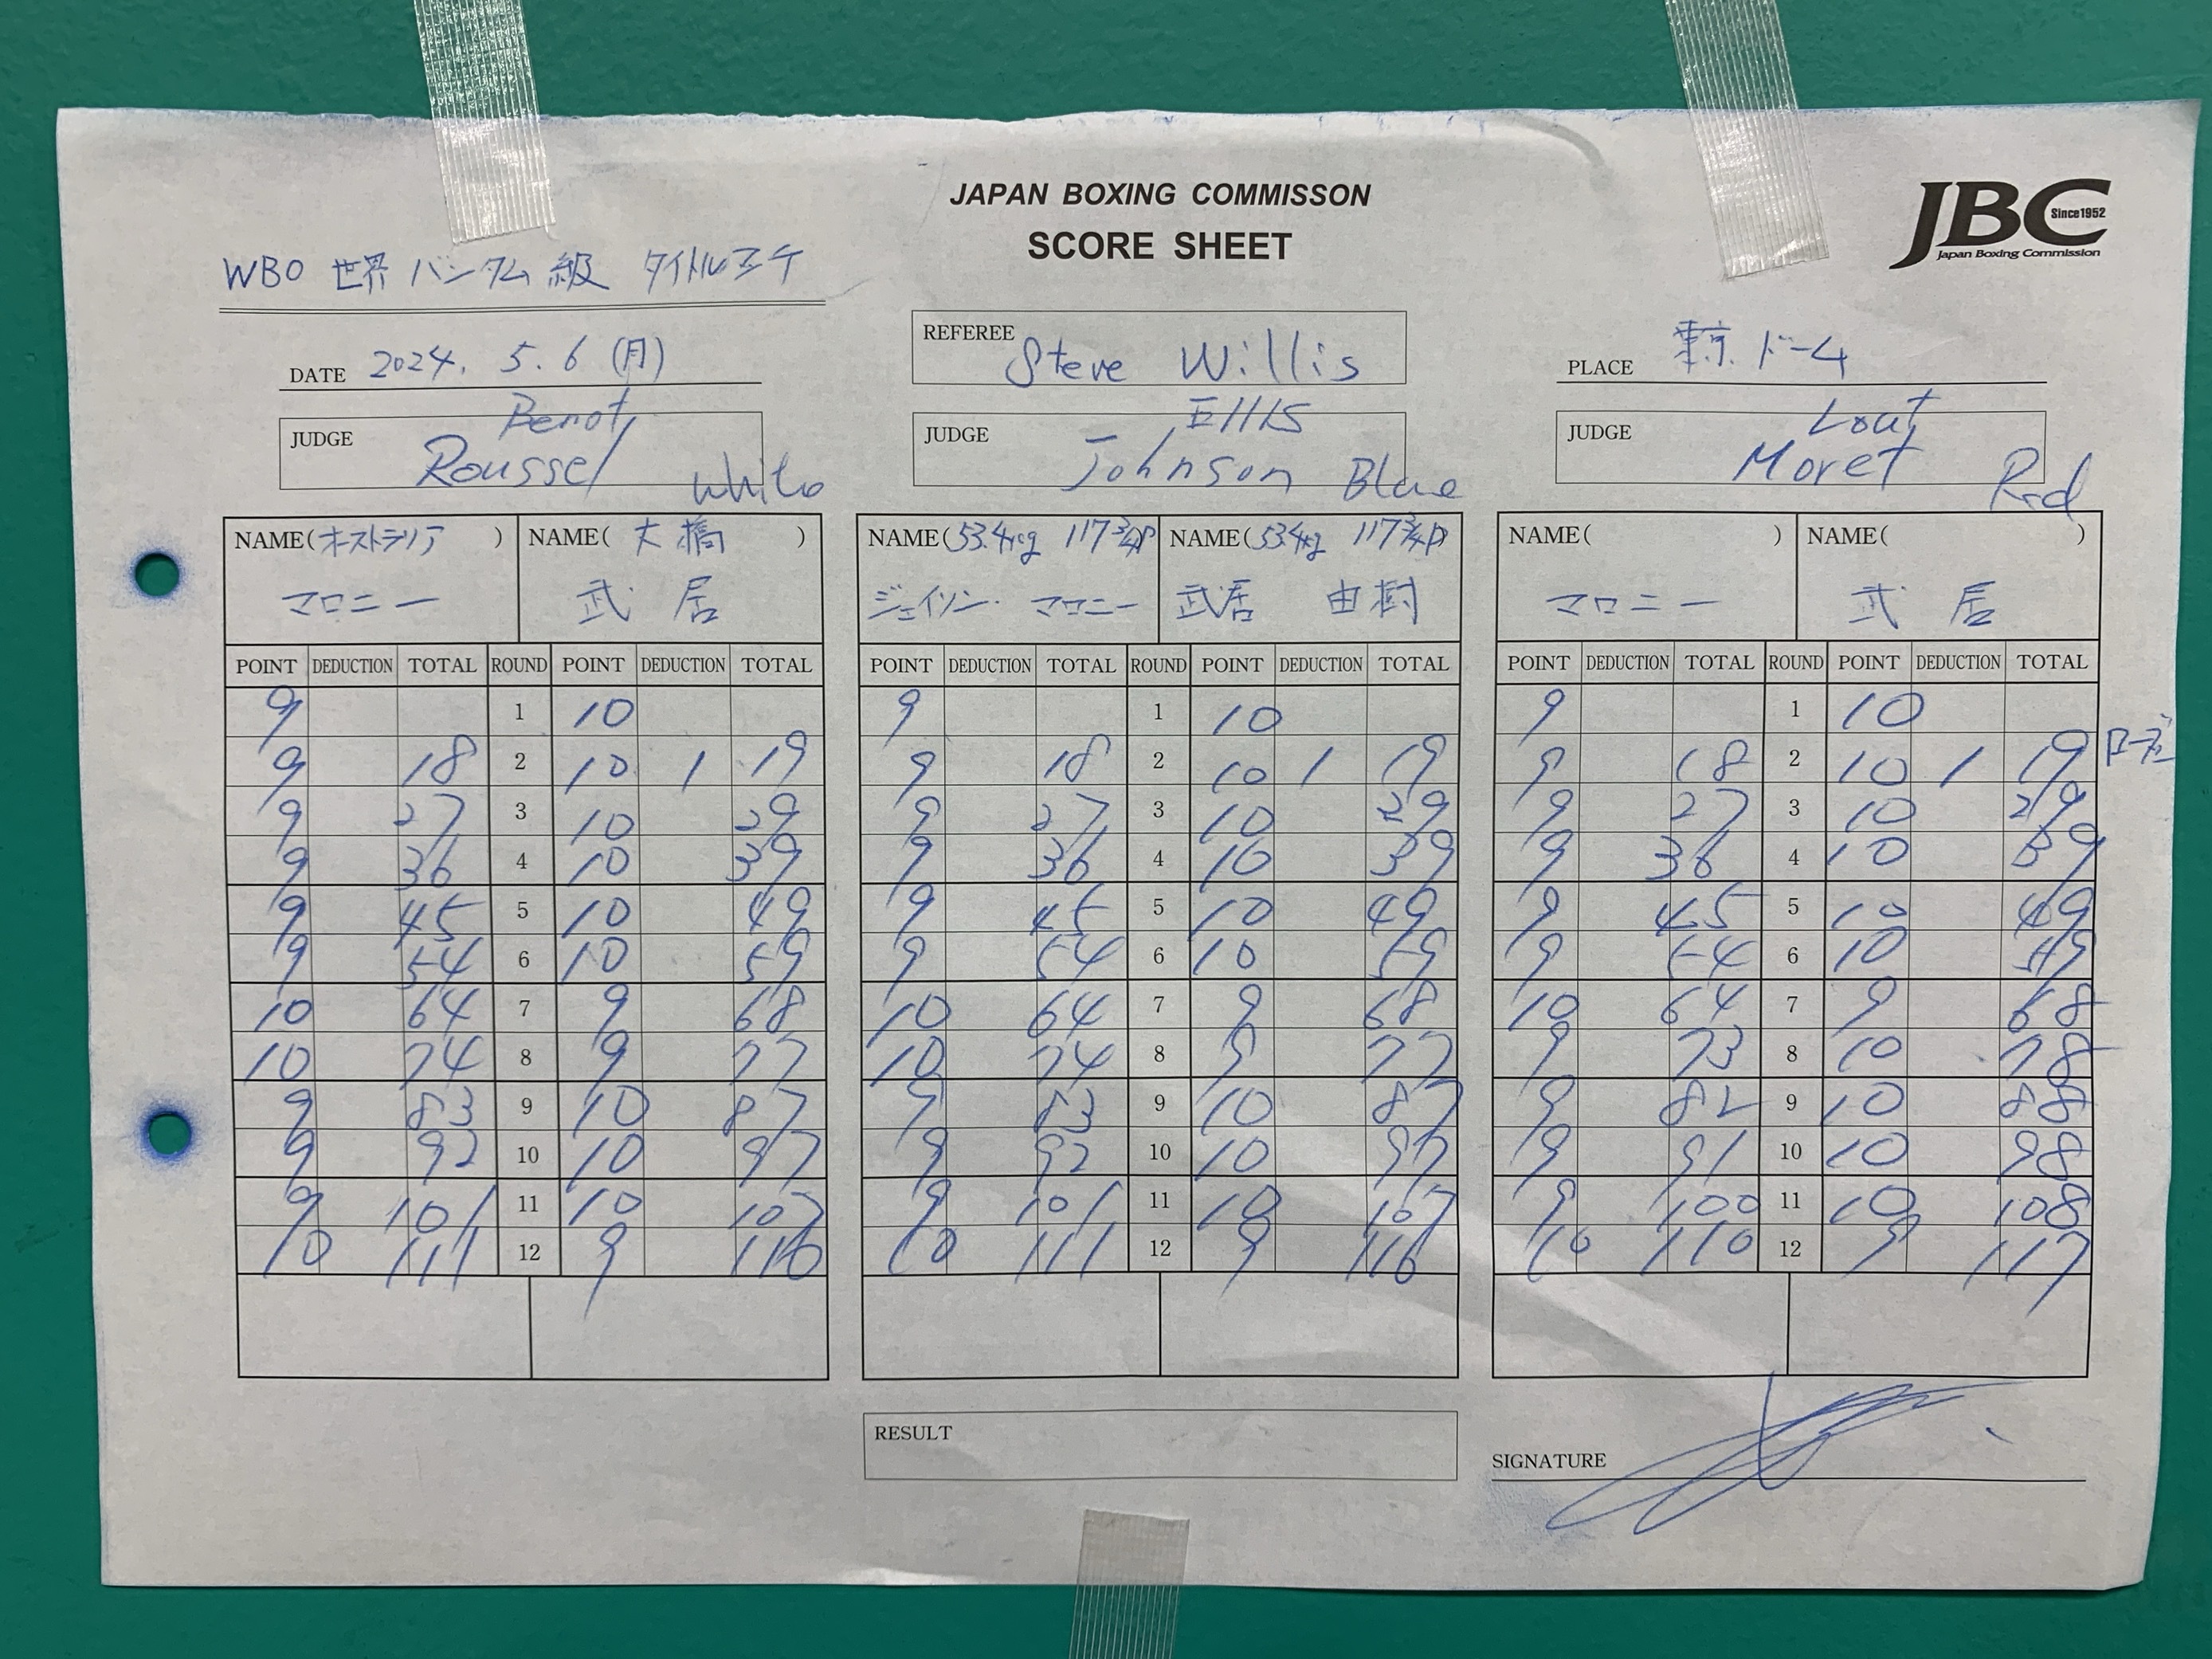 JAPAN BOXING COMMISSON
SCORE SHEET
JBC
Since1952
Japan Boxing Commission
WBO 世界 バンタム級 タイトルマッチ
DATE 2024. 5. 6 (月)
REFEREE Steve Willis
PLACE 東京ドーム
JUDGE Benot Roussel White
JUDGE Ellis Johnson Blue
JUDGE Lout Moret Red
NAME(オーストラリア) NAME(大橋) NAME(53.4kg 117 3/4P NAME(53.4kg 117 3/4P NAME( ) NAME( )
マロニー 武居 ジェイソン・マロニー 武居 由樹 マロニー 武居
POINT DEDUCTION TOTAL ROUND POINT DEDUCTION TOTAL POINT DEDUCTION TOTAL ROUND POINT DEDUCTION TOTAL POINT DEDUCTION TOTAL ROUND POINT DEDUCTION TOTAL
9 1 10 9 1 10 9 1 10
9 18 2 10 1 19 9 18 2 10 1 19 9 18 2 10 1 19 ローブロー
9 27 3 10 29 9 27 3 10 29 9 27 3 10 29
9 36 4 10 39 9 36 4 10 39 9 36 4 10 39
9 45 5 10 49 9 45 5 10 49 9 45 5 10 49
9 54 6 10 59 9 54 6 10 59 9 54 6 10 59
10 64 7 9 68 10 64 7 9 68 10 64 7 9 68
10 74 8 9 77 10 74 8 9 77 9 73 8 10 78
9 83 9 10 87 9 83 9 10 87 9 82 9 10 88
9 92 10 10 97 9 92 10 10 97 9 91 10 10 98
9 101 11 10 107 9 101 11 10 107 9 100 11 10 108
10 111 12 9 116 10 111 12 9 116 10 110 12 9 117
RESULT
SIGNATURE